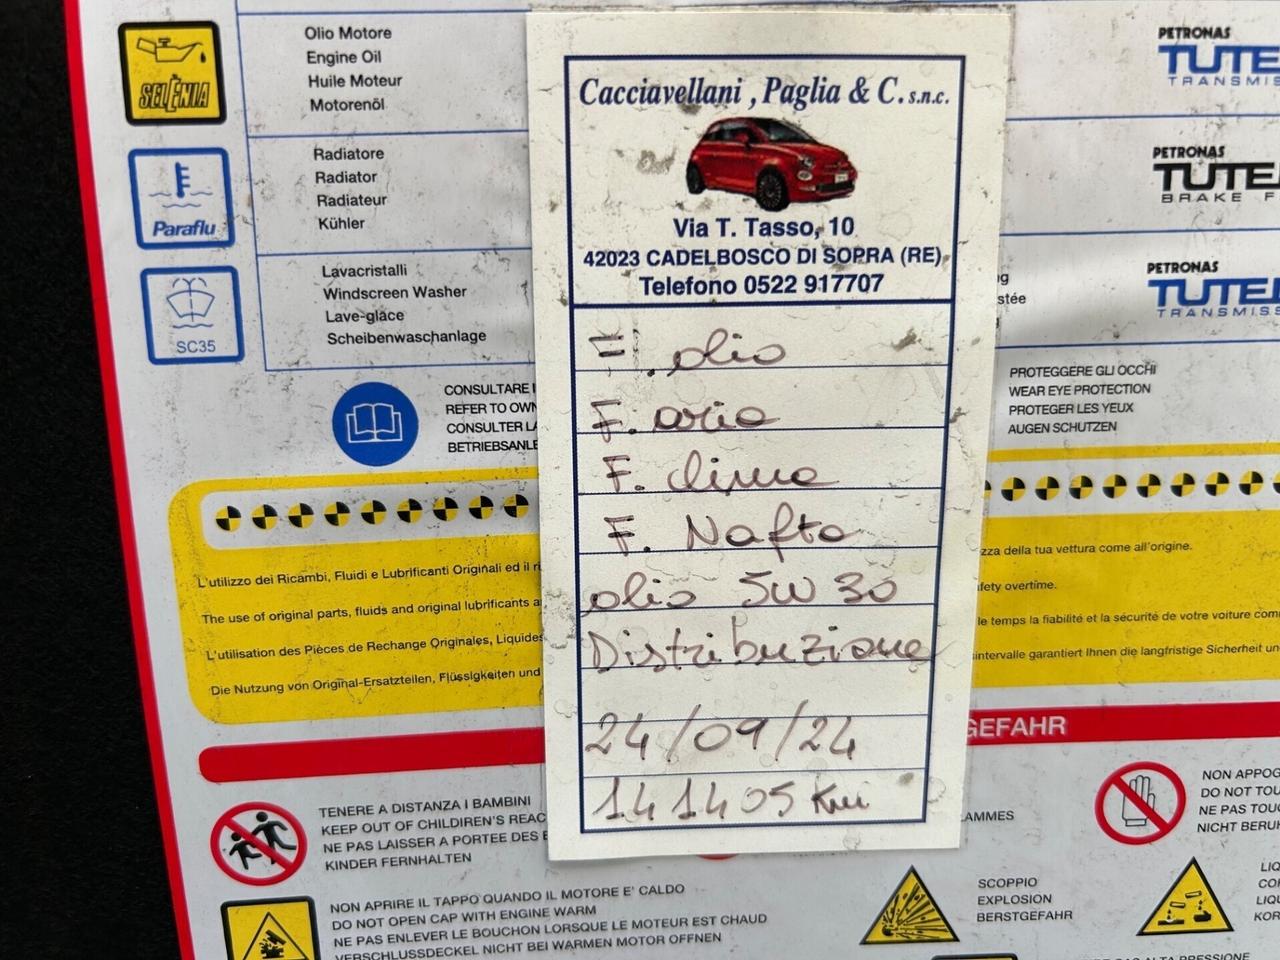 SELÈNIA
Olio Motore
Engine Oil
Huile Moteur
Motorenöl
Paraflu
Radiatore
Radiator
Radiateur
Kühler
SC35
Lavacristalli
Windscreen Washer
Lave-glace
Scheibenwaschanlage
PETRONAS
TUTE
TRANSMIS
PETRONAS
TUTE
BRAKE F
PETRONAS
TUTE
TRANSMIS
Cacciavellani , Paglia & C. s.n.c.
Via T. Tasso, 10
42023 CADELBOSCO DI SOPRA (RE)
Telefono 0522 917707
F. olio
F. aria
F. clima
F. Nafta
olio 5W 30
Distribuzione
24/09/24
141405 Km
CONSULTARE
REFER TO OWN
CONSULTER LA
BETRIEBSANLE
PROTEGGERE GLI OCCHI
WEAR EYE PROTECTION
PROTEGER LES YEUX
AUGEN SCHUTZEN
L'utilizzo dei Ricambi, Fluidi e Lubrificanti Originali ed il
The use of original parts, fluids and original lubrificants
L'utilisation des Pièces de Rechange Originales, Liquides
Die Nutzung von Original-Ersatzteilen, Flüssigkeiten und
zza della tua vettura come all'origine.
fety overtime.
le temps la fiabilité et la sécurité de votre voiture com
intervalle garantiert Ihnen die langfristige Sicherheit un
GEFAHR
TENERE A DISTANZA I BAMBINI
KEEP OUT OF CHILDREN'S REAC
NE PAS LAISSER A PORTEE DES
KINDER FERNHALTEN
AMMES
NON APPOG
DO NOT TOU
NE PAS TOUC
NICHT BERU
NON APRIRE IL TAPPO QUANDO IL MOTORE E' CALDO
DO NOT OPEN CAP WITH ENGINE WARM
NE PAS ENLEVER LE BOUCHON LORSQUE LE MOTEUR EST CHAUD
VERSCHLUSSDECKEL NICHT BEI WARMEN MOTOR OFFNEN
SCOPPIO
EXPLOSION
BERSTGEFAHR
LIQ
COR
LIQU
KOR